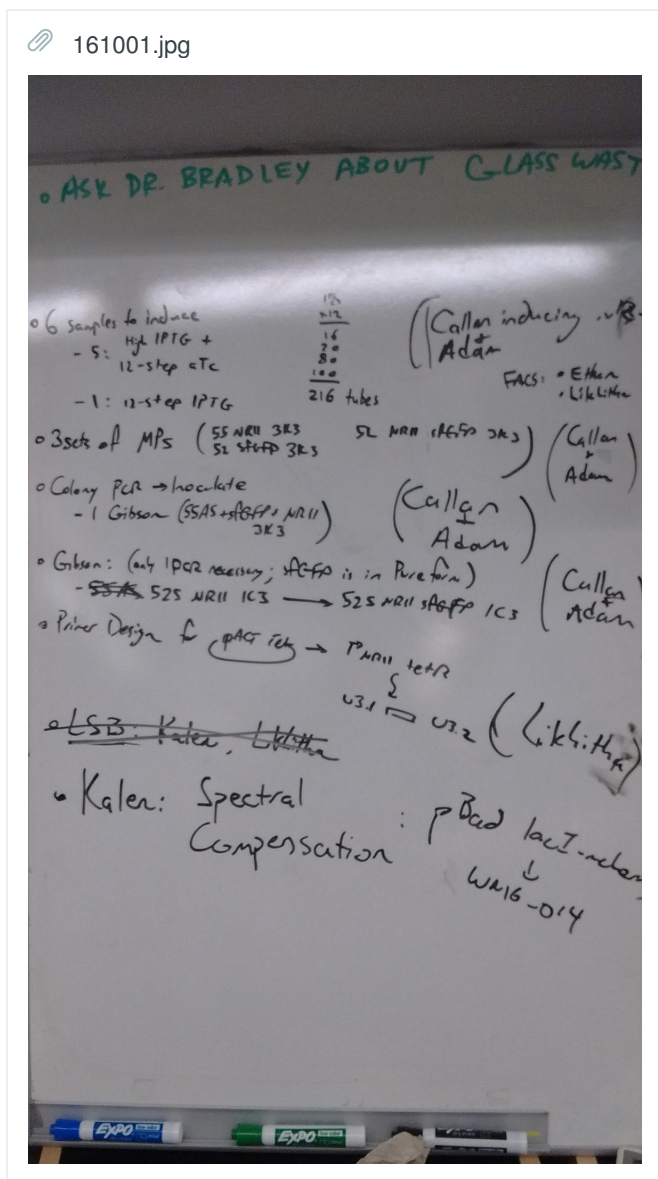 161001.jpg
• ASK DR. BRADLEY ABOUT GLASS WAST
• 6 samples to induce
- 5: High IPTG +
12-step aTc
- 1: 12-step IPTG
18
x12
16
20
80
100
216 tubes
(Callan inducing
+
Adam
FACS: • Ethan
• Likhitha
• 3 sets of MPs (55 NR11 3K3
52 sfGFP 3K3
52 NR11 sfGFP 3K3)
(Callan
+
Adam)
• Colony PCR → Inoculate
- 1 Gibson (55AS+sfGFP+NR11
3K3)
(Callan
+
Adam)
• Gibson: (only 1 PCR necessary; sfGFP is in Pure form)
- 52S NR11 1C3 → 52S NR11 sfGFP 1C3
(Callan
+
Adam
• Primer Design for pACT Tet → PNR11 tetR
U3.1 U3.2
(Likhitha)
• LSB: Kalen, Likhitha
• Kalen: Spectral
Compensation
: pBad lacI-mcher
↓
WM16_014
EXPO
EXPO